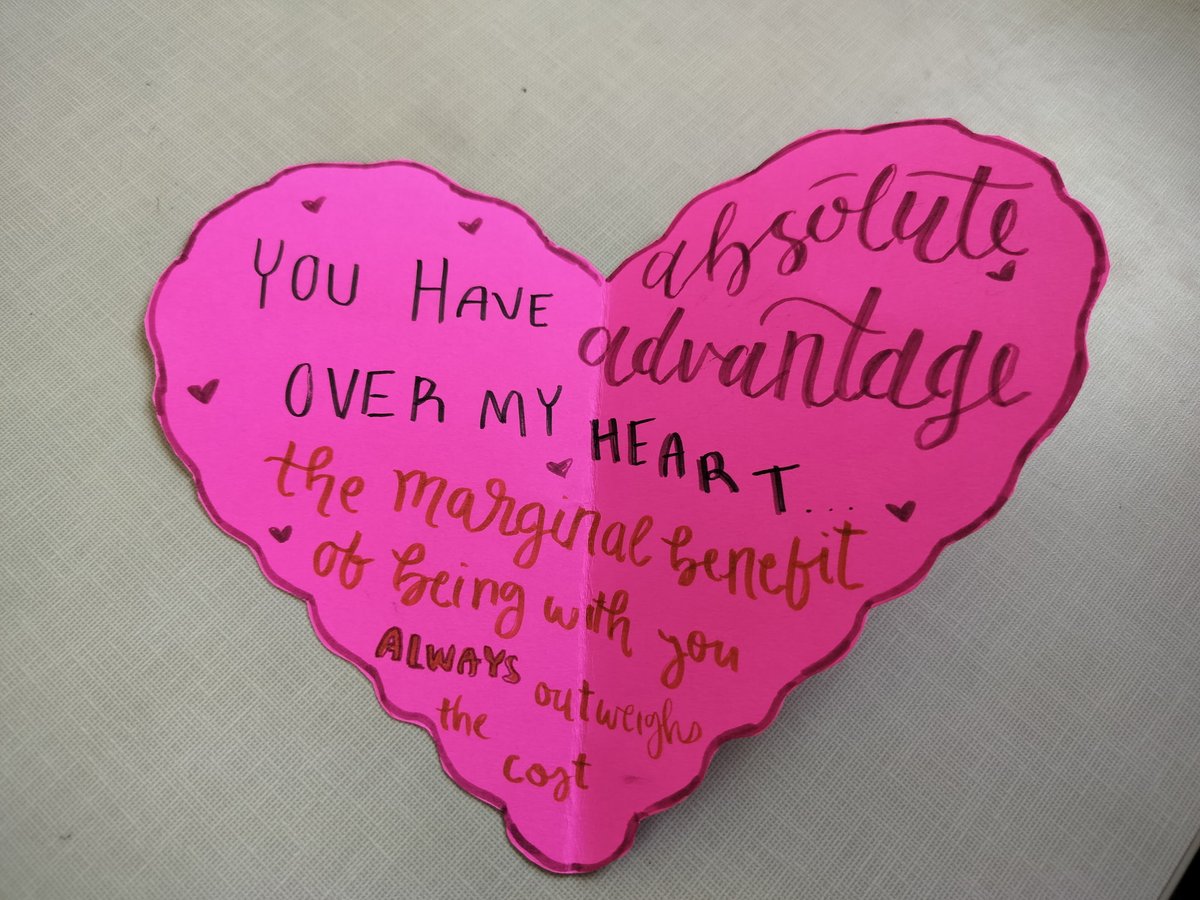 YOU HAVE absolute
advantage
OVER MY HEART...
the marginal benefit
of being with you
ALWAYS outweighs
the
cost